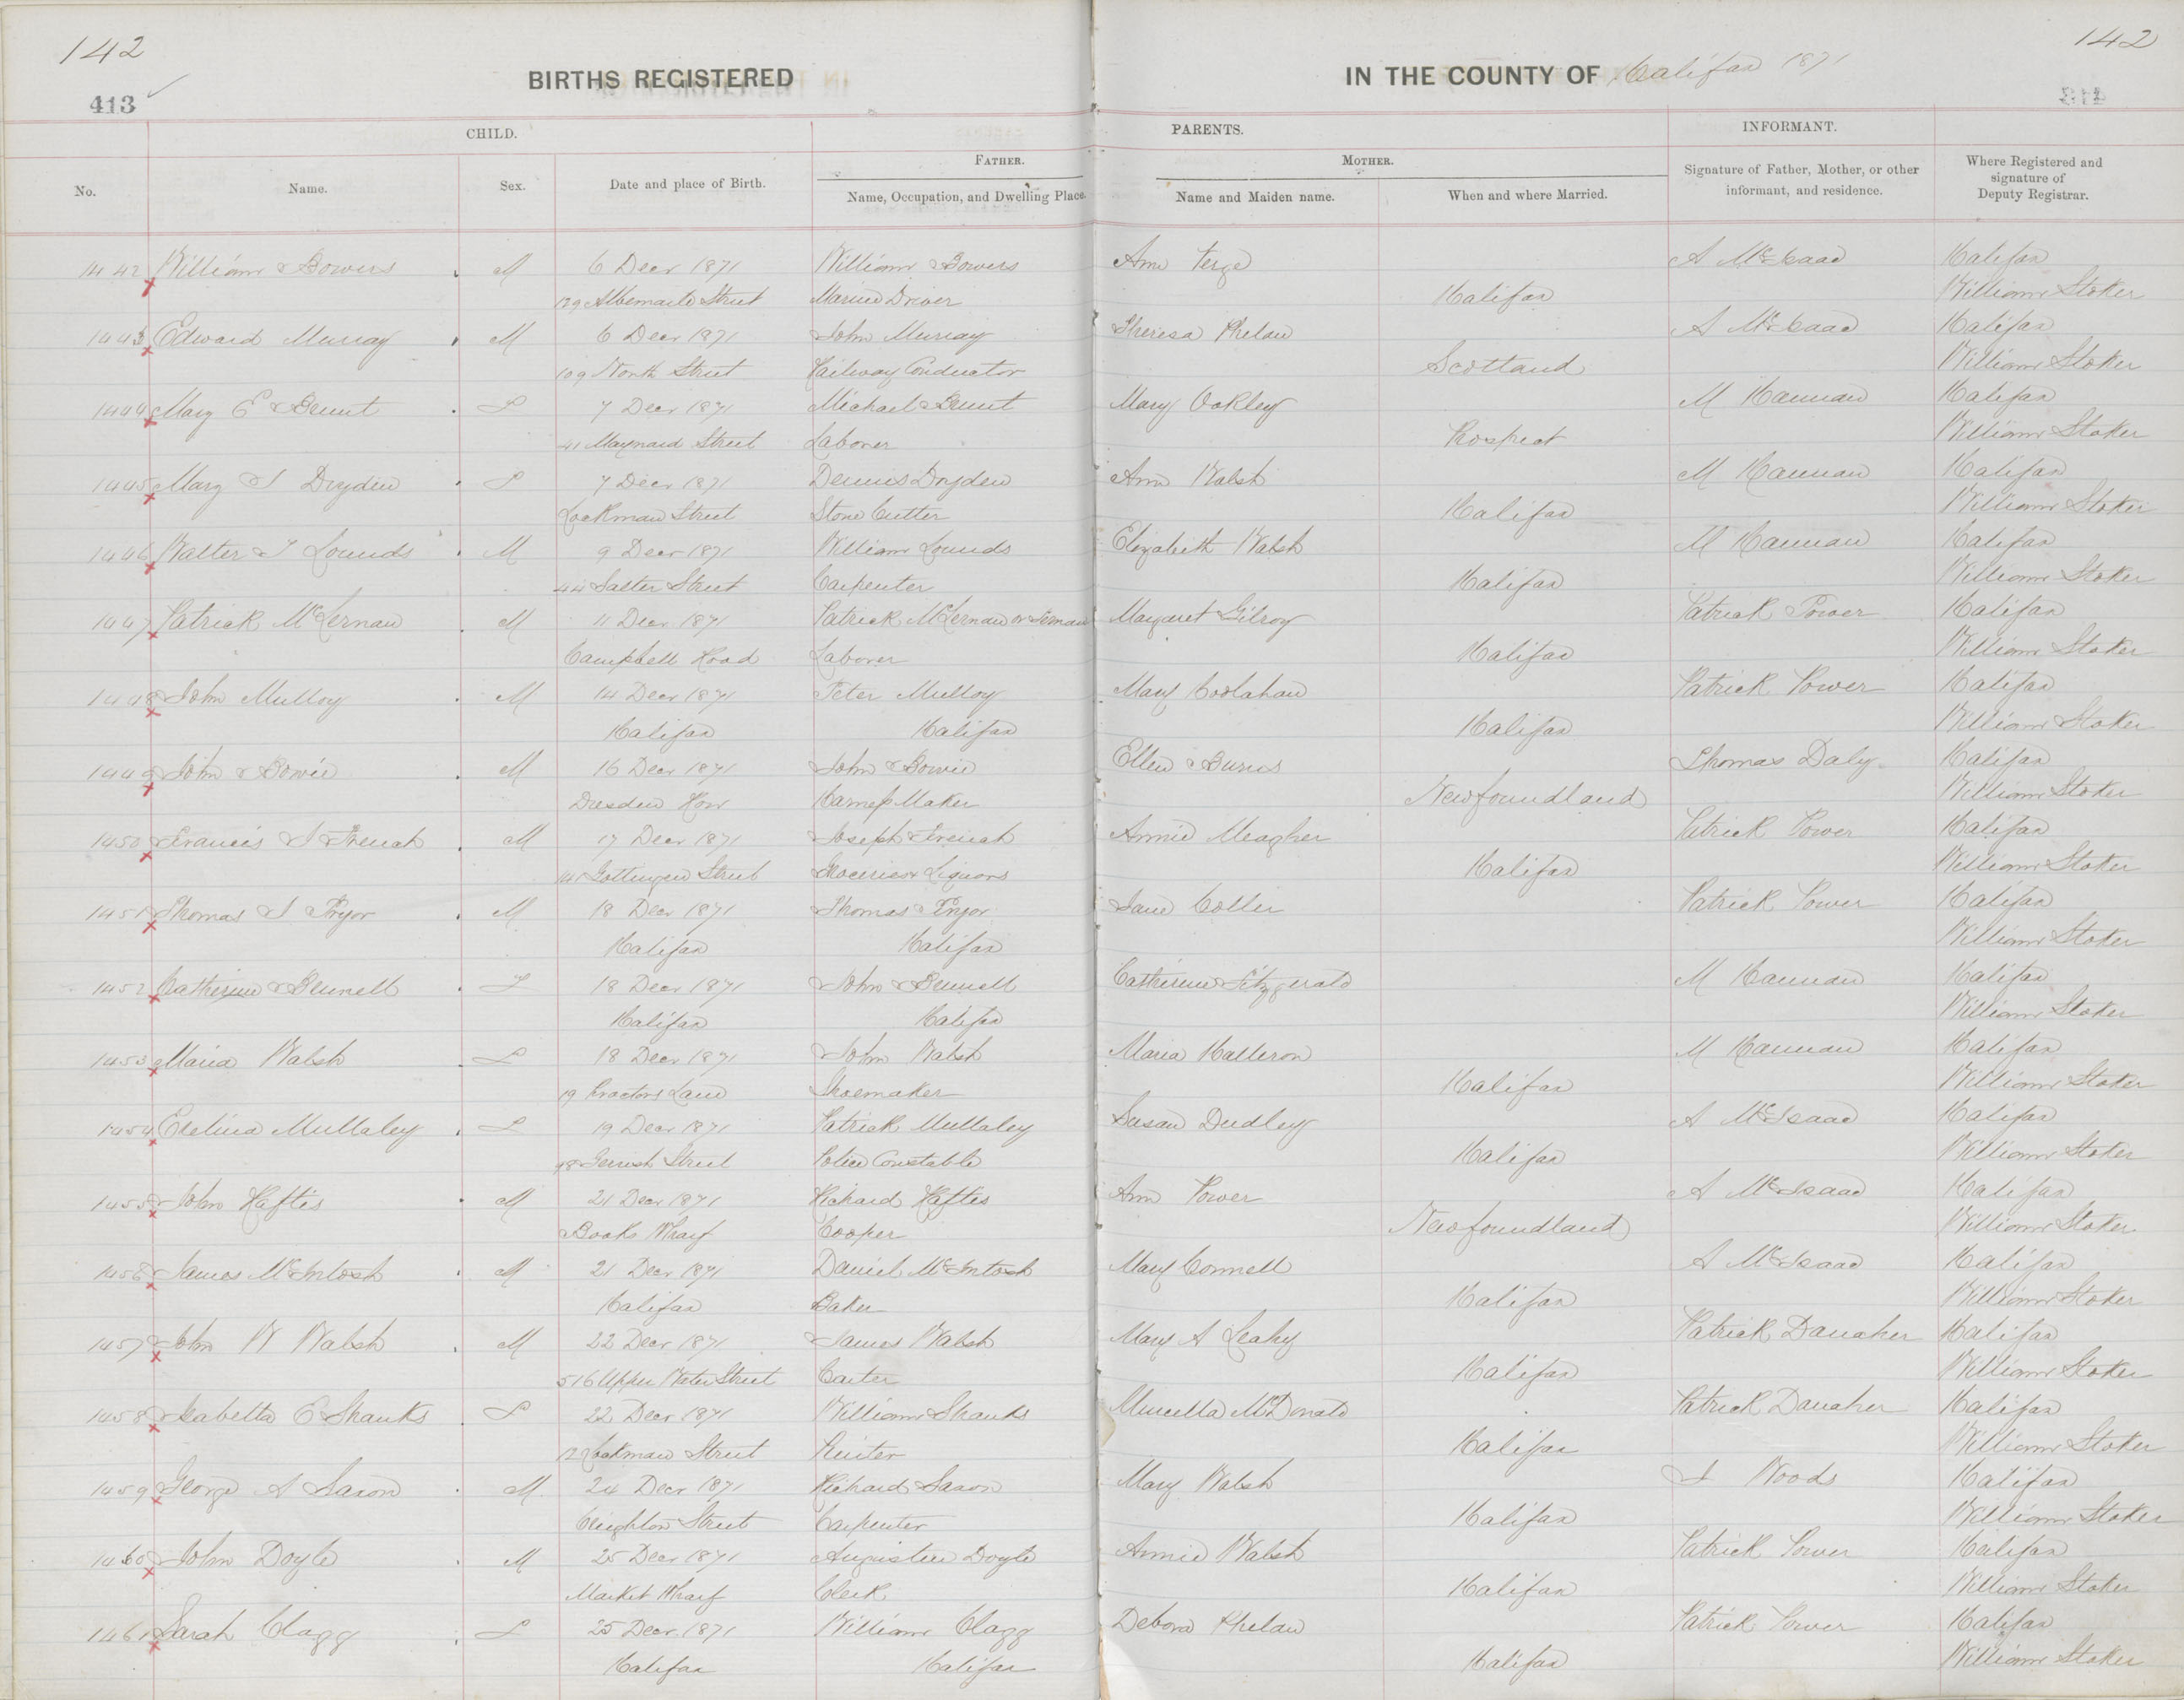 142
142
413
BIRTHS REGISTERED
IN THE COUNTY OF Halifax 1871
CHILD.
PARENTS.
INFORMANT.
FATHER.
MOTHER.
No.
Name.
Sex.
Date and place of Birth.
Name, Occupation, and Dwelling Place.
Name and Maiden name.
When and where Married.
Signature of Father, Mother, or other informant, and residence.
Where Registered and signature of Deputy Registrar.
1442 William Bowers M 6 Decr 1871 William Bowers Ann A McIsaac Halifax
129 Albemarle Street Marine Driver Halifax William Stoker
1443 Edward Murray M 6 Decr 1871 John Murray Theresa Phelan A McIsaac Halifax
109 North Street Railway Conductor Scotland William Stoker
1444 Mary E F 7 Decr 1871 Michael Mary Oakley M Hannan Halifax
41 Maynard Street Laborer Prospect William Stoker
1445 Mary J Dryden F 7 Decr 1871 Dennis Dryden Ann Walsh M Hannan Halifax
Lockman Street Stone Cutter Halifax William Stoker
1446 Walter J Lounds M 9 Decr 1871 William Lounds Elizabeth Walsh M Hannan Halifax
44 Salter Street Carpenter Halifax William Stoker
1447 Patrick McLernan M 11 Decr 1871 Patrick McLernan or Margaret Gilroy Patrick Power Halifax
Campbell Road Laborer Halifax William Stoker
1448 John Mulloy M 14 Decr 1871 Peter Mulloy Mary Coolahan Patrick Power Halifax
Halifax Halifax Halifax William Stoker
1449 John Bowie M 16 Decr 1871 John Bowie Ellen Burns Thomas Daly Halifax
Dresden Row Harness Maker Newfoundland William Stoker
1450 Francis J French M 17 Decr 1871 Joseph French Annie Meagher Patrick Power Halifax
141 Gottingen Street Groceries & Liquors Halifax William Stoker
1451 Thomas J Pryor M 18 Decr 1871 Thomas Pryor Jane Colter Patrick Power Halifax
Halifax Halifax William Stoker
1452 Catherine Bennell F 18 Decr 1871 John Bennell Catherine Fitzgerald M Hannan Halifax
Halifax Halifax William Stoker
1453 Maria Walsh F 18 Decr 1871 John Walsh Maria Halleron M Hannan Halifax
19 Proctors Lane Shoemaker Halifax William Stoker
1454 Evelina Mullaley F 19 Decr 1871 Patrick Mullaley Susan Dudley A McIsaac Halifax
98 Gerrish Street Police Constable Halifax William Stoker
1455 John Raftis M 21 Decr 1871 Richard Raftis Ann Power A McIsaac Halifax
Wharf Cooper Newfoundland William Stoker
1456 James McIntosh M 21 Decr 1871 Daniel McIntosh Mary Connell A McIsaac Halifax
Halifax Baker Halifax William Stoker
1457 John W Walsh M 22 Decr 1871 James Walsh Mary A Leahy Patrick Danaher Halifax
516 Upper Water Street Carter Halifax William Stoker
1458 Isabella C Shanks F 22 Decr 1871 William Shanks McDonald Patrick Danaher Halifax
12 Lockman Street Printer Halifax William Stoker
1459 George A Saxon M 24 Decr 1871 Richard Saxon Mary Walsh J Woods Halifax
Creighton Street Carpenter Halifax William Stoker
1460 John Doyle M 25 Decr 1871 Augustine Doyle Annie Walsh Patrick Power Halifax
Market Wharf Clerk Halifax William Stoker
1461 Sarah Clagg F 25 Decr 1871 William Clagg Debora Phelan Patrick Power Halifax
Halifax Halifax Halifax William Stoker